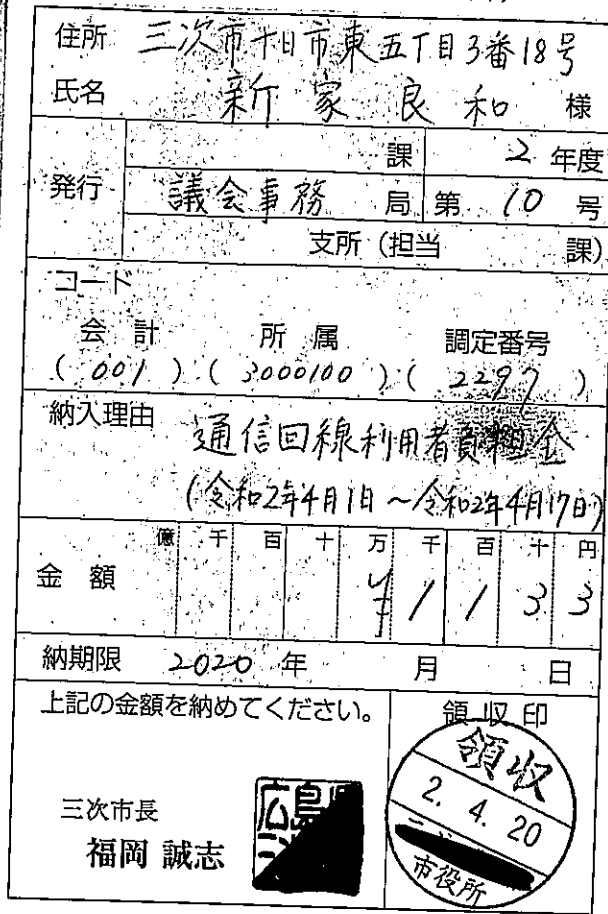 住所 三次市十日市東五丁目3番18号
氏名 新家良和 様
発行
課 2年度
議会事務局 第10号
支所(担当 課)
コード
会計 所属 調定番号
(001)(3000100)(2297)
納入理由 通信回線利用者負担金
(令和2年4月1日~令和2年4月17日)
億 千 百 十 万 千 百 十 円
金額 ¥1133
納期限 2020年 月 日
上記の金額を納めてください。
領収印
三次市長
福岡 誠志
広島
領収
2. 4. 20
市役所